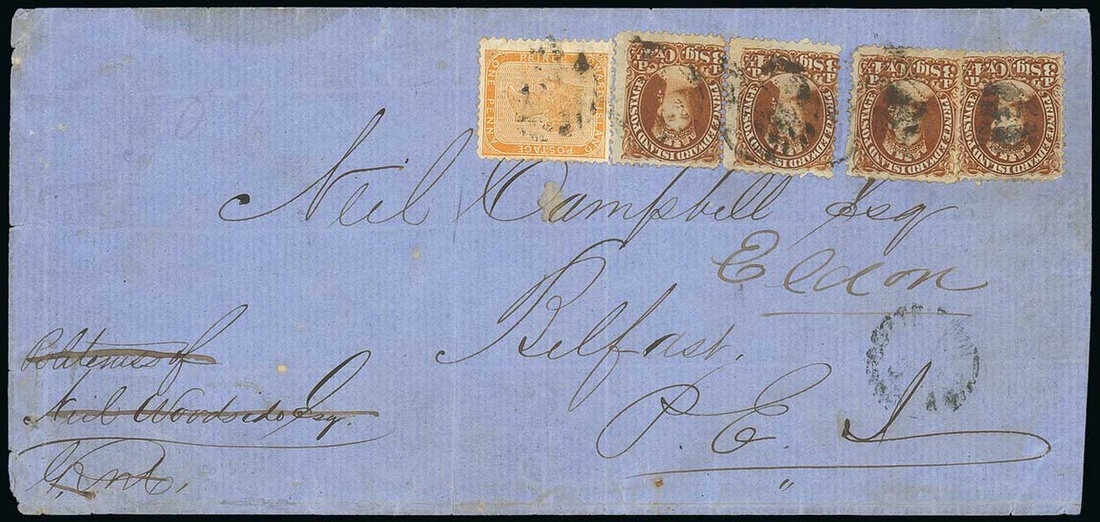 ONE PENNY
POSTAGE
3d Stg. Cy. 4½d
PRINCE EDWARD ISLAND POSTAGE
3d Stg. Cy. 4½d
PRINCE EDWARD ISLAND POSTAGE
3d Stg. Cy. 4½d
PRINCE EDWARD ISLAND POSTAGE
3d Stg. Cy. 4½d
PRINCE EDWARD ISLAND POSTAGE
Neil Campbell Esq
Eldon
Belfast,
P. E. I
Politeness of
Neil Woodside Esq.